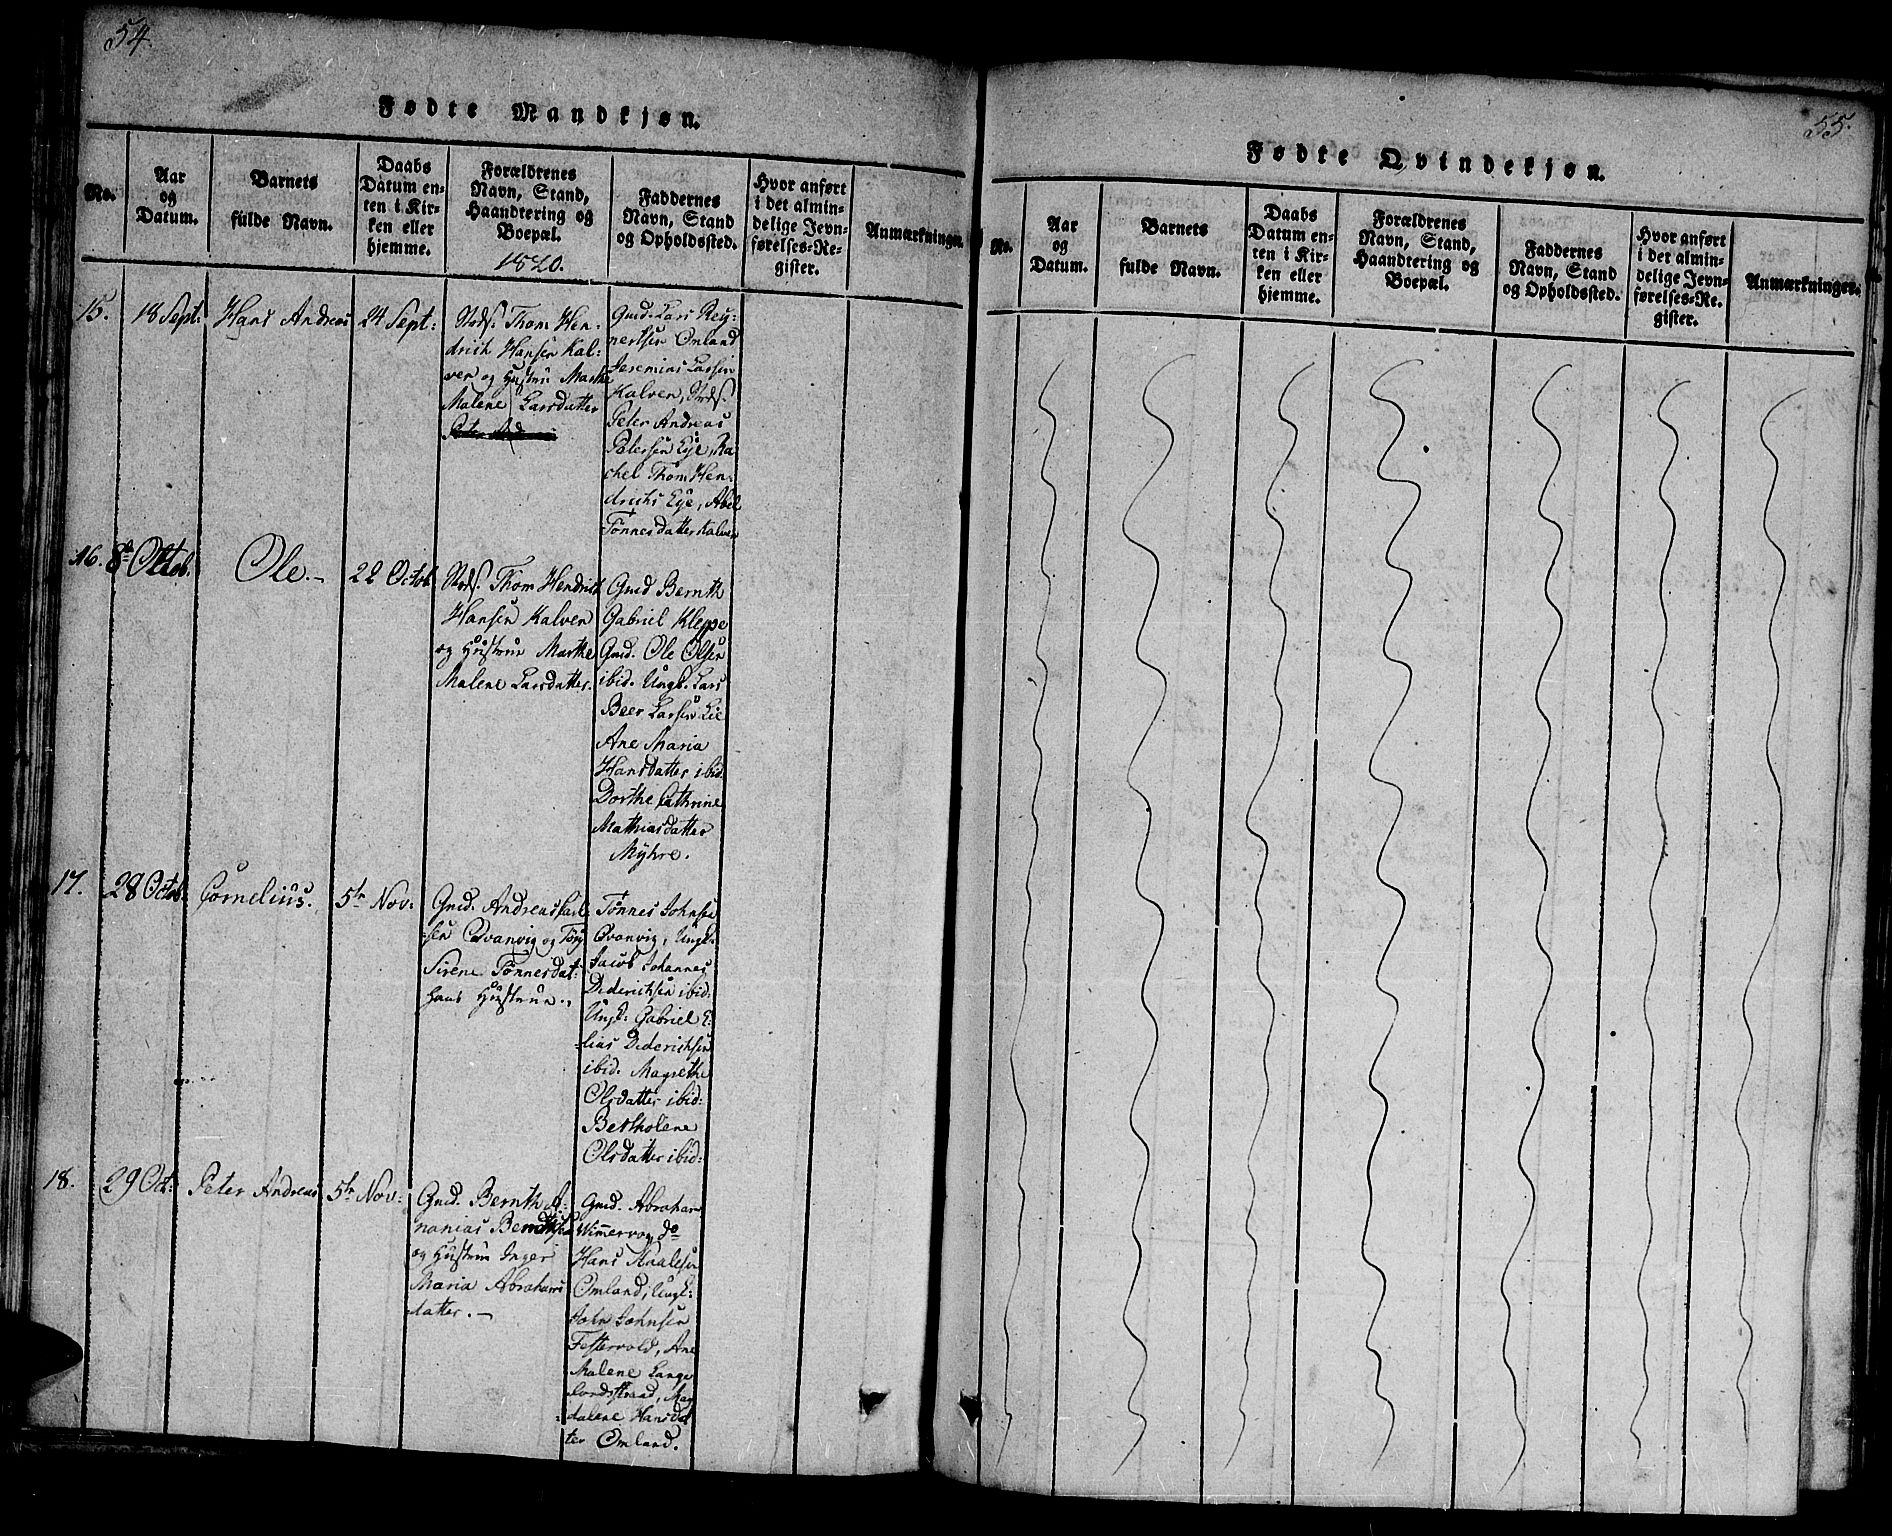 54.
Fødte Mandkjøn.
No.
Aar
og
Datum.
Barnets
fulde Navn.
Daabs
Datum en-
ten i Kir-
ken eller
hjemme.
Forældrenes
Navn, Stand,
Haandtering og
Boepæl.
1820.
Faddernes
Navn, Stand
og Opholdssted.
Hvor anført
i det almin-
delige Jevn-
førelses-Re-
gister.
Anmærkninger.
15.
18 Sept:
Hans Andreas
24 Sept:
Thom Hen-
drich Hansen Kal-
ven og Hustrue Marthe
Malene Larsdatter
Gmd. Lars Rey-
nertsen Omland
Jeremias Larsen
Kalven,
Peter Andreas
Petersen Eye, Ra
chel Thom Hen-
drichs Eye, Abel
Tönnesdatter Kalven
16.
8de Octob.
Ole.-
22 Octob.
Thom Hendrich
Hansen Kalven
og Hustrue Marthe
Malene Larsdatter.
Gmd Bernth
Gabriel Kleppe
Gmd. Ole Olsen
ibid. Ungk. Lars
Beer Larsen Lie
Ane Maria
Hansdatter ibid.
Dorthe Cathrine
Mathiasdatter
Myhre.
17.
28 Octob:
Cornelius.
5te Nov:
Gmd. Andreas Carl-
sen Qvanvig og
Sirene Tönnesdat:
hans Hustrue.
Tönnes Johnsen
Qvanvig, Ungk.
Jacob Johannes
Diderichsen ibid:
Ungk: Gabriel E-
lias Diderichsen
ibid. Magrethe
Olsdatter ibid:
Bertholene
Olsdatter ibid:
18.
29 Oct:
Peter Andreas
5te Nov:
Gmd. Bernth A-
nanias Berntsen
og Hustrue Inger
Maria Abrahams
datter.-
Gmd. Abraham
Wimmervog do
Hans Aanalsen
Omland, Ungk:
John Johnsen
Festervold, Ane
Malene Lange
Londsstrand, Mag
dalene Hansdat
ter Omland.
55.
Fødte Qvindekjøn.
No.
Aar
og
Datum.
Barnets
fulde Navn.
Daabs
Datum en-
ten i Kir-
ken eller
hjemme.
Forældrenes
Navn, Stand,
Haandtering og
Boepæl.
Faddernes
Navn, Stand
og Opholdssted.
Hvor anført
i det almin-
delige Jevn-
førelses-Re-
gister.
Anmærkninger.